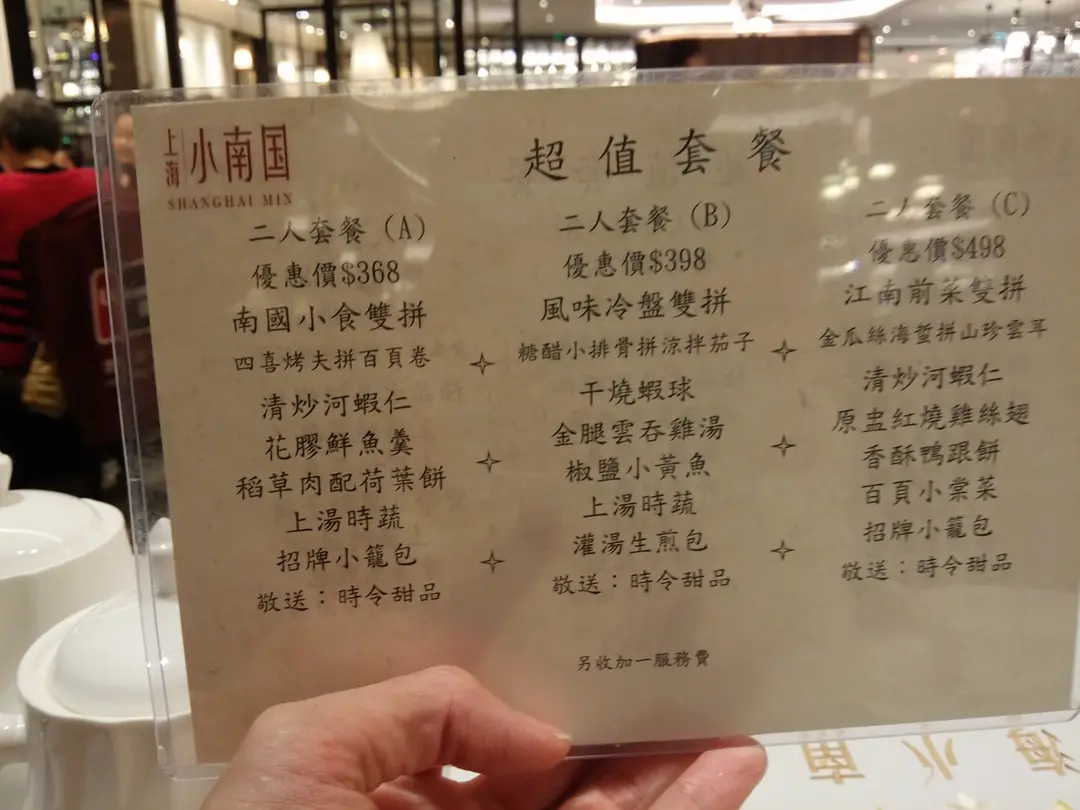 上海 小南国
SHANGHAI MIN
超值套餐
二人套餐 (A)
優惠價$368
南國小食雙拼
四喜烤夫拼百頁卷
清炒河蝦仁
花膠鮮魚羹
稻草肉配荷葉餅
上湯時蔬
招牌小籠包
敬送：時令甜品
二人套餐 (B)
優惠價$398
風味冷盤雙拼
糖醋小排骨拼涼拌茄子
干燒蝦球
金腿雲吞雞湯
椒鹽小黃魚
上湯時蔬
灌湯生煎包
敬送：時令甜品
二人套餐 (C)
優惠價$498
江南前菜雙拼
金瓜絲海蜇拼山珍雲耳
清炒河蝦仁
原盅紅燒雞絲翅
香酥鴨跟餅
百頁小棠菜
招牌小籠包
敬送：時令甜品
另收加一服務費
海小南